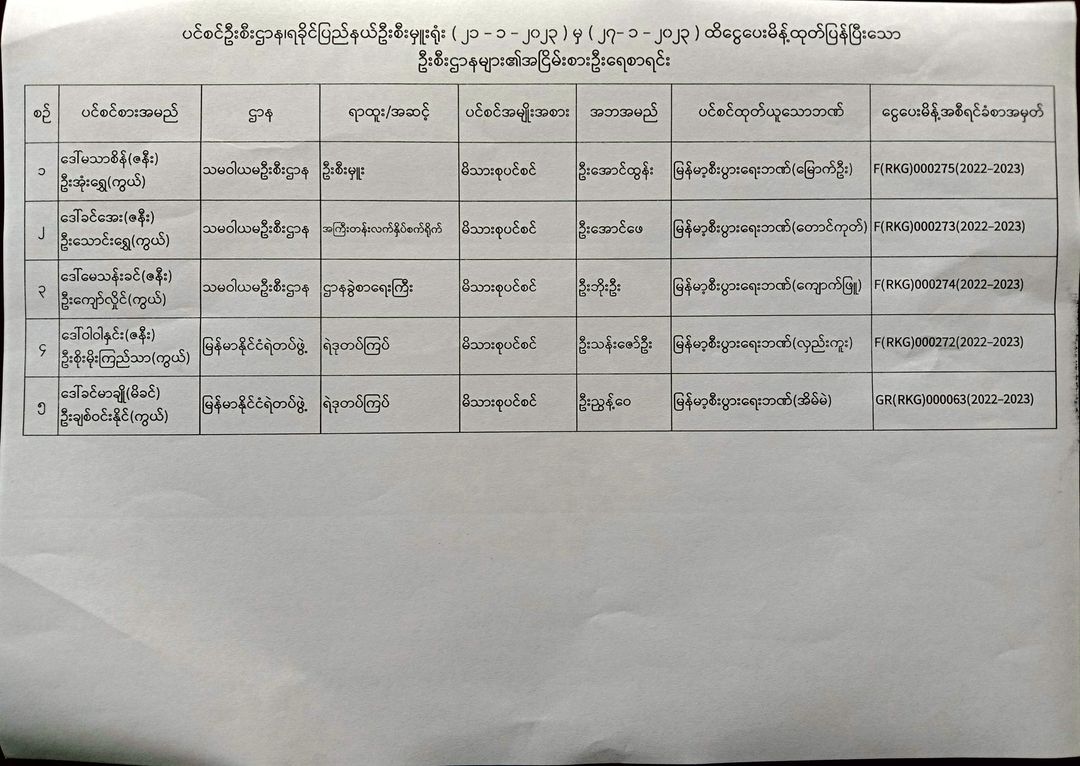 ပင်စင်ဦးစီးဌာန၊ရခိုင်ပြည်နယ်ဦးစီးမှူးရုံး ( ၂၁ - ၁ - ၂၀၂၃ ) မှ ( ၂၇- ၁ - ၂၀၂၃ ) ထိငွေပေးမိန့်ထုတ်ပြန်ပြီးသော
ဦးစီးဌာနများ၏အငြိမ်းစားဦးရေစာရင်း
စဉ် ပင်စင်စားအမည် ဌာန ရာထူး/အဆင့် ပင်စင်အမျိုးအစား အဘအမည် ပင်စင်ထုတ်ယူသောဘဏ် ငွေပေးမိန့်အစီရင်ခံစာအမှတ်
၁ ဒေါ်မသာစိန်(ဇနီး) သမဝါယမဦးစီးဌာန ဦးစီးမှူး မိသားစုပင်စင် ဦးအောင်ထွန်း မြန်မာ့စီးပွားရေးဘဏ်(မြောက်ဦး) F(RKG)000275(2022-2023)
ဦးအုံးရွှေ(ကွယ်)
၂ ဒေါ်ခင်အေး(ဇနီး) သမဝါယမဦးစီးဌာန အကြီးတန်းလက်နှိပ်စက်ရိုက် မိသားစုပင်စင် ဦးအောင်ဖေ မြန်မာ့စီးပွားရေးဘဏ်(တောင်ကုတ်) F(RKG)000273(2022-2023)
ဦးသောင်းရွှေ(ကွယ်)
၃ ဒေါ်မေသန်းခင်(ဇနီး) သမဝါယမဦးစီးဌာန ဌာနခွဲစာရေးကြီး မိသားစုပင်စင် ဦးဘိုးဦး မြန်မာ့စီးပွားရေးဘဏ်(ကျောက်ဖြူ) F(RKG)000274(2022-2023)
ဦးကျော်လှိုင်(ကွယ်)
၄ ဒေါ်ဝါဝါနှင်း(ဇနီး) မြန်မာနိုင်ငံရဲတပ်ဖွဲ့ ရဲဒုတပ်ကြပ် မိသားစုပင်စင် ဦးသန်းဇော်ဦး မြန်မာ့စီးပွားရေးဘဏ်(လှည်းကူး) F(RKG)000272(2022-2023)
ဦးစိုးမိုးကြည်သာ(ကွယ်)
၅ ဒေါ်ခင်မာချို(မိခင်) မြန်မာနိုင်ငံရဲတပ်ဖွဲ့ ရဲဒုတပ်ကြပ် မိသားစုပင်စင် ဦးညွန့်ဝေ မြန်မာ့စီးပွားရေးဘဏ်(အိမ်မဲ) GR(RKG)000063(2022-2023)
ဦးချစ်ဝင်းနိုင်(ကွယ်)